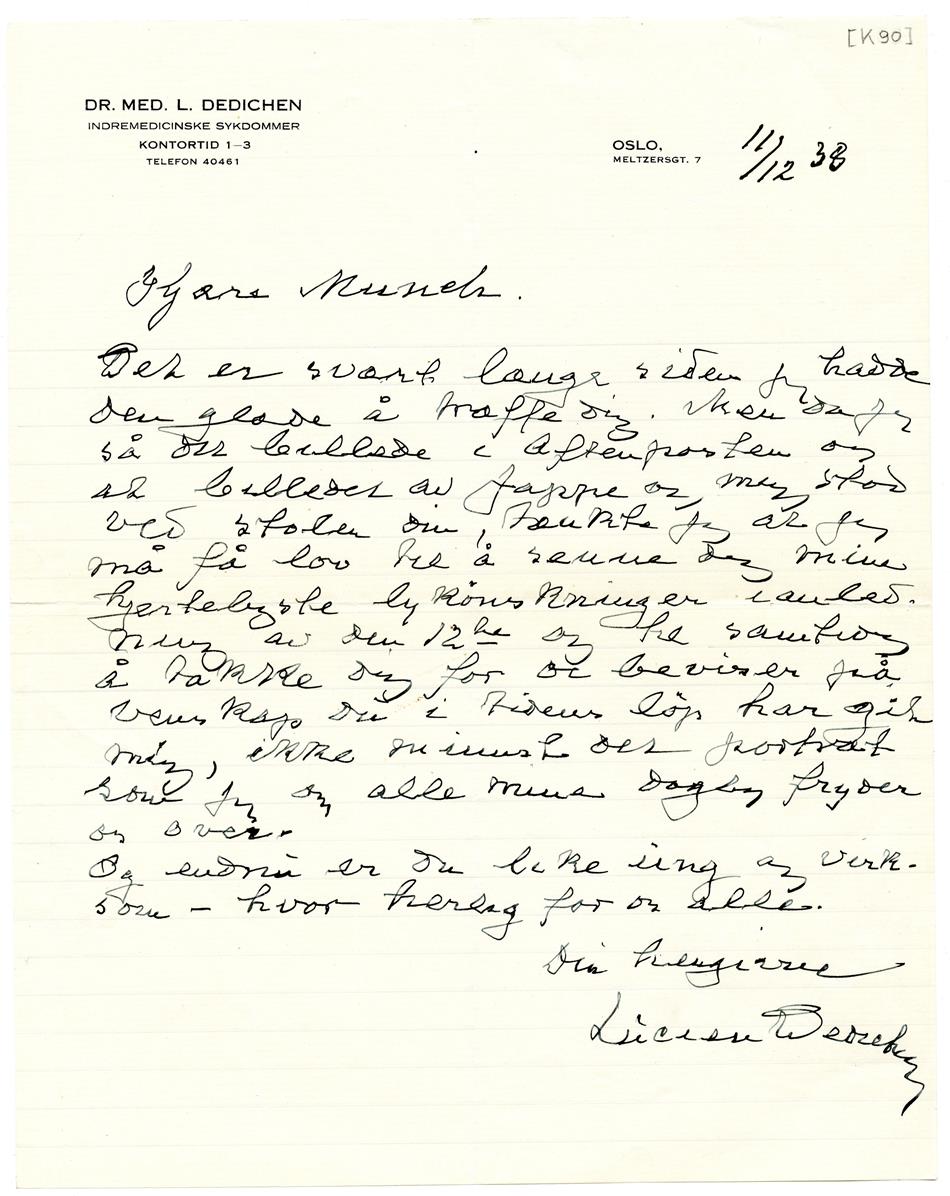 [K90]
DR. MED. L. DEDICHEN
INDREMEDICINSKE SYKDOMMER
KONTORTID 1–3
TELEFON 40461
OSLO,
MELTZERSGT. 7
11/12 38
Kjære Munch.
Det er svært længe siden jeg hadde
den glæde å træffe dig. Men da jeg
så det billede i Aftenposten og
at billedet av Jappe og mig stod
ved stolen din, tænkte jeg at jeg
må få lov til å senne dig mine
hjerteligste lykönskninger i anled-
ning av den 12te og til samtidig
å takke dig for de beviser på
venskap du i tidens löp har git
mig, ikke minnst det portræt
som jeg og alle mine dagly fryder
os over.
Og endnu er du like ung og virk-
som – hvor herlig for os alle.
Din hengivne
Lucien Dedichen